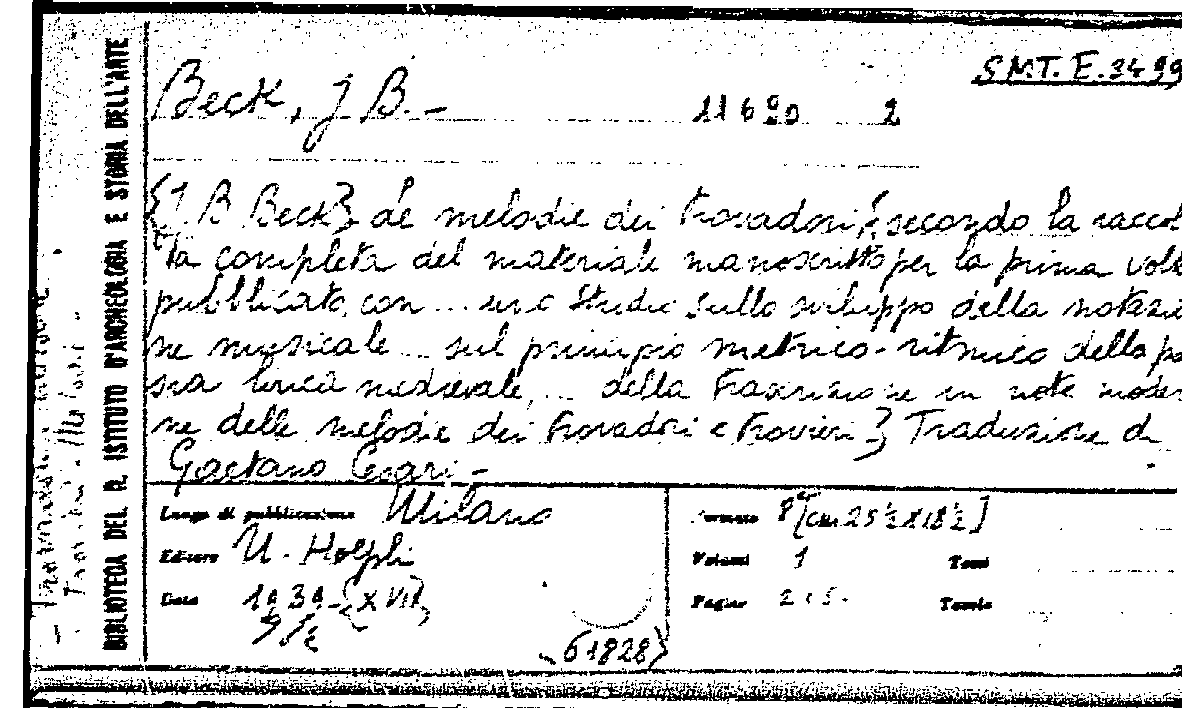 SMT. E. 3499
Beck, J B. -
11690 2
{J B Beck} Le melodie dei trovadori {secondo la raccol
ta completa del materiale manoscritto per la prima volt
pubblicato, con ... uno studio sullo sviluppo della notazio
ne musicale ... sul principio metrico-ritmico della po
sia lirica medievale, ... della trascrizione in note moder
ne delle melodie dei trovadori e trovieri} Traduzione di
Gaetano Cesari -
Luogo di pubblicazione Milano
Editore U. Hoepli
Data 1939 - {XVII}
Formato 8° [cm 25 ½ X 18 ½]
Volumi 1 Tomi
Pagine 205. Tavole
(61828)
BIBLIOTECA DEL R. ISTITUTO D'ARCHEOLOGIA E STORIA DELL'ARTE